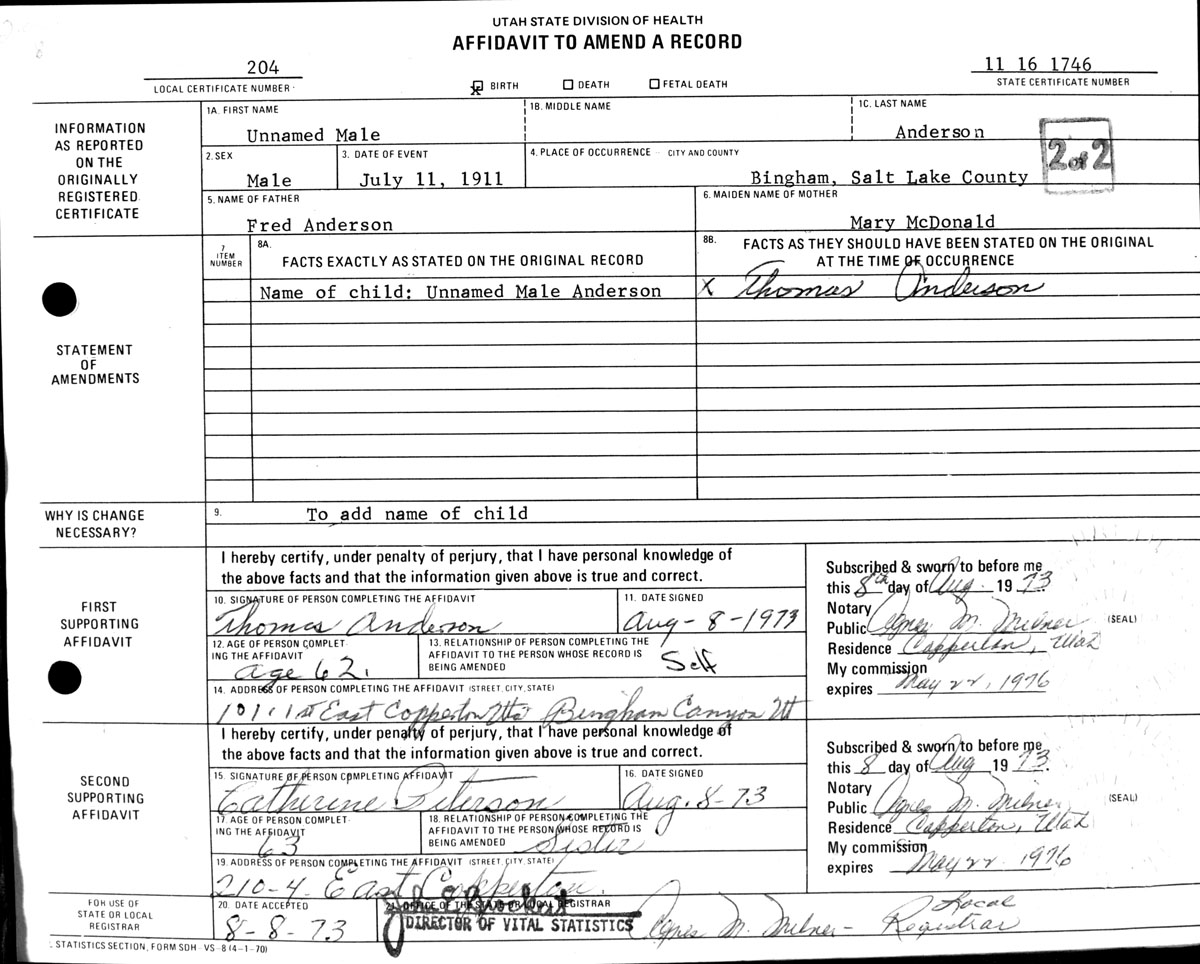 UTAH STATE DIVISION OF HEALTH
AFFIDAVIT TO AMEND A RECORD
204
LOCAL CERTIFICATE NUMBER
☒ BIRTH ☐ DEATH ☐ FETAL DEATH
11 16 1746
STATE CERTIFICATE NUMBER
INFORMATION
AS REPORTED
ON THE
ORIGINALLY
REGISTERED
CERTIFICATE
1A. FIRST NAME
Unnamed Male
1B. MIDDLE NAME
1C. LAST NAME
Anderson
2 of 2
2. SEX
Male
3. DATE OF EVENT
July 11, 1911
4. PLACE OF OCCURRENCE - CITY AND COUNTY
Bingham, Salt Lake County
5. NAME OF FATHER
Fred Anderson
6. MAIDEN NAME OF MOTHER
Mary McDonald
STATEMENT
OF
AMENDMENTS
7
ITEM
NUMBER
8A.
FACTS EXACTLY AS STATED ON THE ORIGINAL RECORD
8B. FACTS AS THEY SHOULD HAVE BEEN STATED ON THE ORIGINAL
AT THE TIME OF OCCURRENCE
Name of child: Unnamed Male Anderson
X Thomas Anderson
WHY IS CHANGE
NECESSARY?
9. To add name of child
FIRST
SUPPORTING
AFFIDAVIT
I hereby certify, under penalty of perjury, that I have personal knowledge of
the above facts and that the information given above is true and correct.
10. SIGNATURE OF PERSON COMPLETING THE AFFIDAVIT
Thomas Anderson
11. DATE SIGNED
Aug-8-1973
12. AGE OF PERSON COMPLET-
ING THE AFFIDAVIT
age 62.
13. RELATIONSHIP OF PERSON COMPLETING THE
AFFIDAVIT TO THE PERSON WHOSE RECORD IS
BEING AMENDED
Self
14. ADDRESS OF PERSON COMPLETING THE AFFIDAVIT (STREET, CITY, STATE)
101 1st East Copperton Bingham Canyon Ut
Subscribed & sworn to before me
this 8th day of Aug. 1973
Notary
Public Agnes M. Milner (SEAL)
Residence Copperton, Utah
My commission
expires May 22, 1976
SECOND
SUPPORTING
AFFIDAVIT
I hereby certify, under penalty of perjury, that I have personal knowledge of
the above facts and that the information given above is true and correct.
15. SIGNATURE OF PERSON COMPLETING AFFIDAVIT
Catherine Peterson
16. DATE SIGNED
Aug. 8-73
17. AGE OF PERSON COMPLET-
ING THE AFFIDAVIT
63
18. RELATIONSHIP OF PERSON COMPLETING THE
AFFIDAVIT TO THE PERSON WHOSE RECORD IS
BEING AMENDED
Sister
19. ADDRESS OF PERSON COMPLETING THE AFFIDAVIT (STREET, CITY, STATE)
210-4-East Copperton.
Subscribed & sworn to before me
this 8 day of Aug 1973.
Notary
Public Agnes M. Milner (SEAL)
Residence Copperton, Utah
My commission
expires May 22, 1976
FOR USE OF
STATE OR LOCAL
REGISTRAR
20. DATE ACCEPTED
8-8-73
21. OFFICE OF THE STATE OR LOCAL REGISTRAR
DIRECTOR OF VITAL STATISTICS
Agnes M. Milner - Local
Registrar
STATISTICS SECTION, FORM SDH - VS-8 (4-1-70)